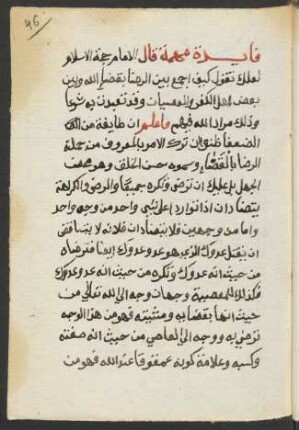 46
فايدة مهمة قال الامام حجة الاسلام
لعلك تقول كيف اجمع بين الرضا بقضا الله وبين
بغض اهل الكفر والمعصيات وقد تعبدت به شرعا
وذلك مراد الله فيهم فاعلم ان طايفة من
الضعفا ظنوا ان ترك الامر بالمعروف من جملة
الرضا بالقضاء وسموه حسن الخلق وهو محض
الجهل بل عليك ان ترضى وتكره جميعا والرضى والكراهة
يتضادان اذا تواردا على شي واحد من وجه واحد
واما من وجهين فلا يتضادان فلانه لا يتناقض
ان يقتل عدوك الذي هو عدو عدوك ايضا فترضاه
من حيث انه عدوك وتكره من حيث انه عدو عدوك
فكذلك للمعصية وجهان وجه الى الله تعالى من
حيث انها بقضايه ومشيته فهو من هذا الوجه
ترضى به ووجه الى العاصي من حيث انه صفته
وكسبه وعلامة كونه ممقوتا عند الله فهو من